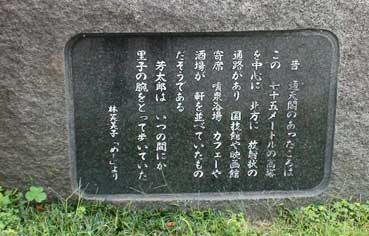 昔 通天閣のあったころは
この 七十五メートルの高塔
を中心に 北方に 放射状の
通路があり 国技館や映画館
寄席 噴泉浴場 カフェーや
酒場が 軒を並べていたもの
だそうである
芳太郎は いつの間にか
里子の腕をとって歩いていた
林芙美子「めし」より